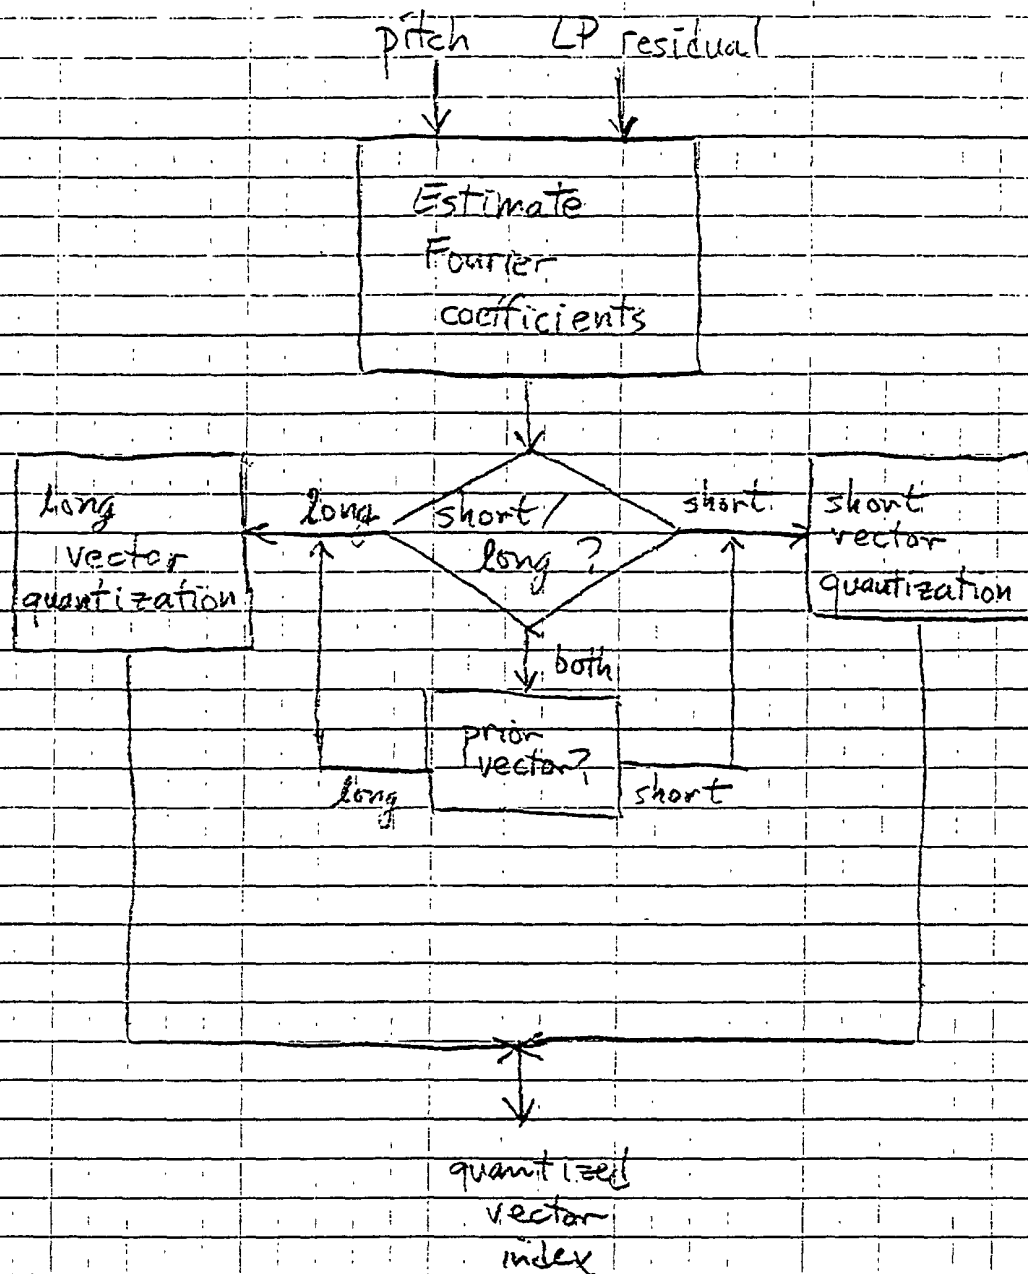 pitch LP residual
Estimate
Fourier
coefficients
long
vector
quantization
long
short/
long?
short
short
vector
quantization
both
prior
vector?
long
short
quantized
vector
index